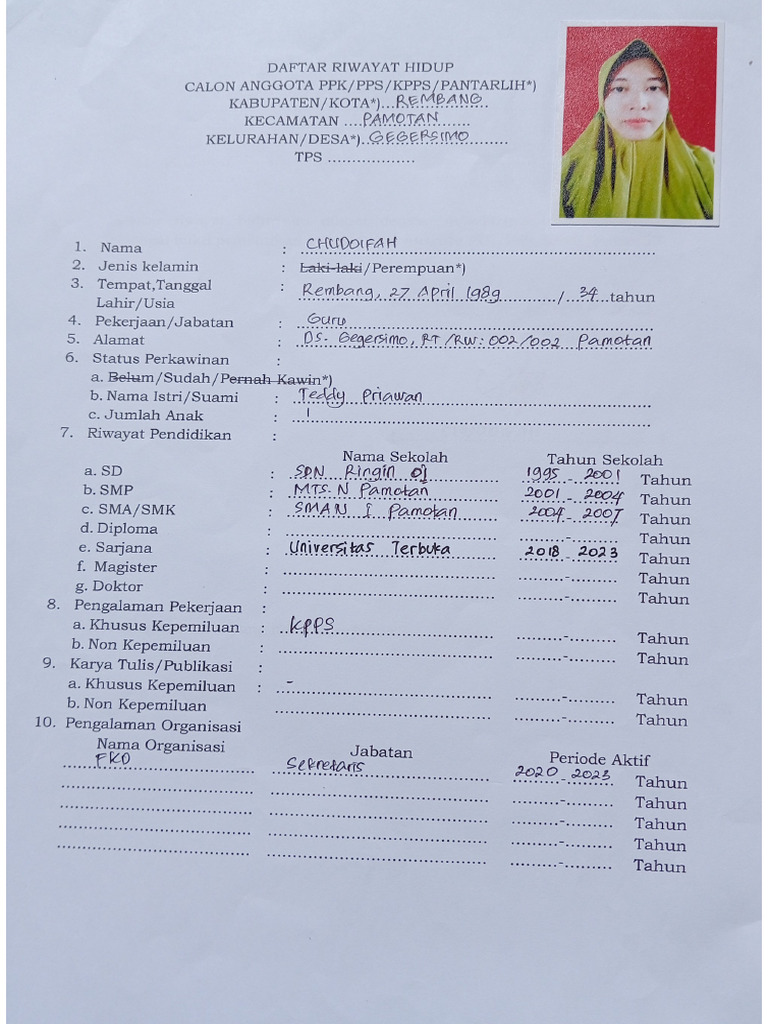 DAFTAR RIWAYAT HIDUP
CALON ANGGOTA PPK/PPS/KPPS/PANTARLIH*)
KABUPATEN/KOTA*)...REMBANG
KECAMATAN ....PAMOTAN.......
KELURAHAN/DESA*)..GEGERSIMO......................
TPS ..................
1. Nama : CHUDOIFAH
2. Jenis kelamin : Laki-laki/Perempuan*)
3. Tempat,Tanggal : Rembang, 27 April 1989 / 34 tahun
Lahir/Usia
4. Pekerjaan/Jabatan : Guru
5. Alamat : Ds. Gegersimo, RT/RW: 002/002 Pamotan
6. Status Perkawinan :
a. Belum/Sudah/Pernah Kawin*)
b. Nama Istri/Suami : Teddy Priawan
c. Jumlah Anak : 1
7. Riwayat Pendidikan :
Nama Sekolah Tahun Sekolah
a. SD : SDN Ringin 01 1995 - 2001 Tahun
b. SMP : MTS. N Pamotan 2001 - 2004 Tahun
c. SMA/SMK : SMAN 1 Pamotan 2004 - 2007 Tahun
d. Diploma : .........-......... Tahun
e. Sarjana : Universitas Terbuka 2018 - 2023 Tahun
f. Magister : .........-......... Tahun
g. Doktor : .........-......... Tahun
8. Pengalaman Pekerjaan :
a. Khusus Kepemiluan : KPPS .........-......... Tahun
b. Non Kepemiluan : .........-......... Tahun
9. Karya Tulis/Publikasi :
a. Khusus Kepemiluan : - .........-......... Tahun
b. Non Kepemiluan .........-......... Tahun
10. Pengalaman Organisasi
Nama Organisasi Jabatan Periode Aktif
FKD Sekretaris 2020 - 2023 Tahun
.........-......... Tahun
.........-......... Tahun
.........-......... Tahun
.........-......... Tahun